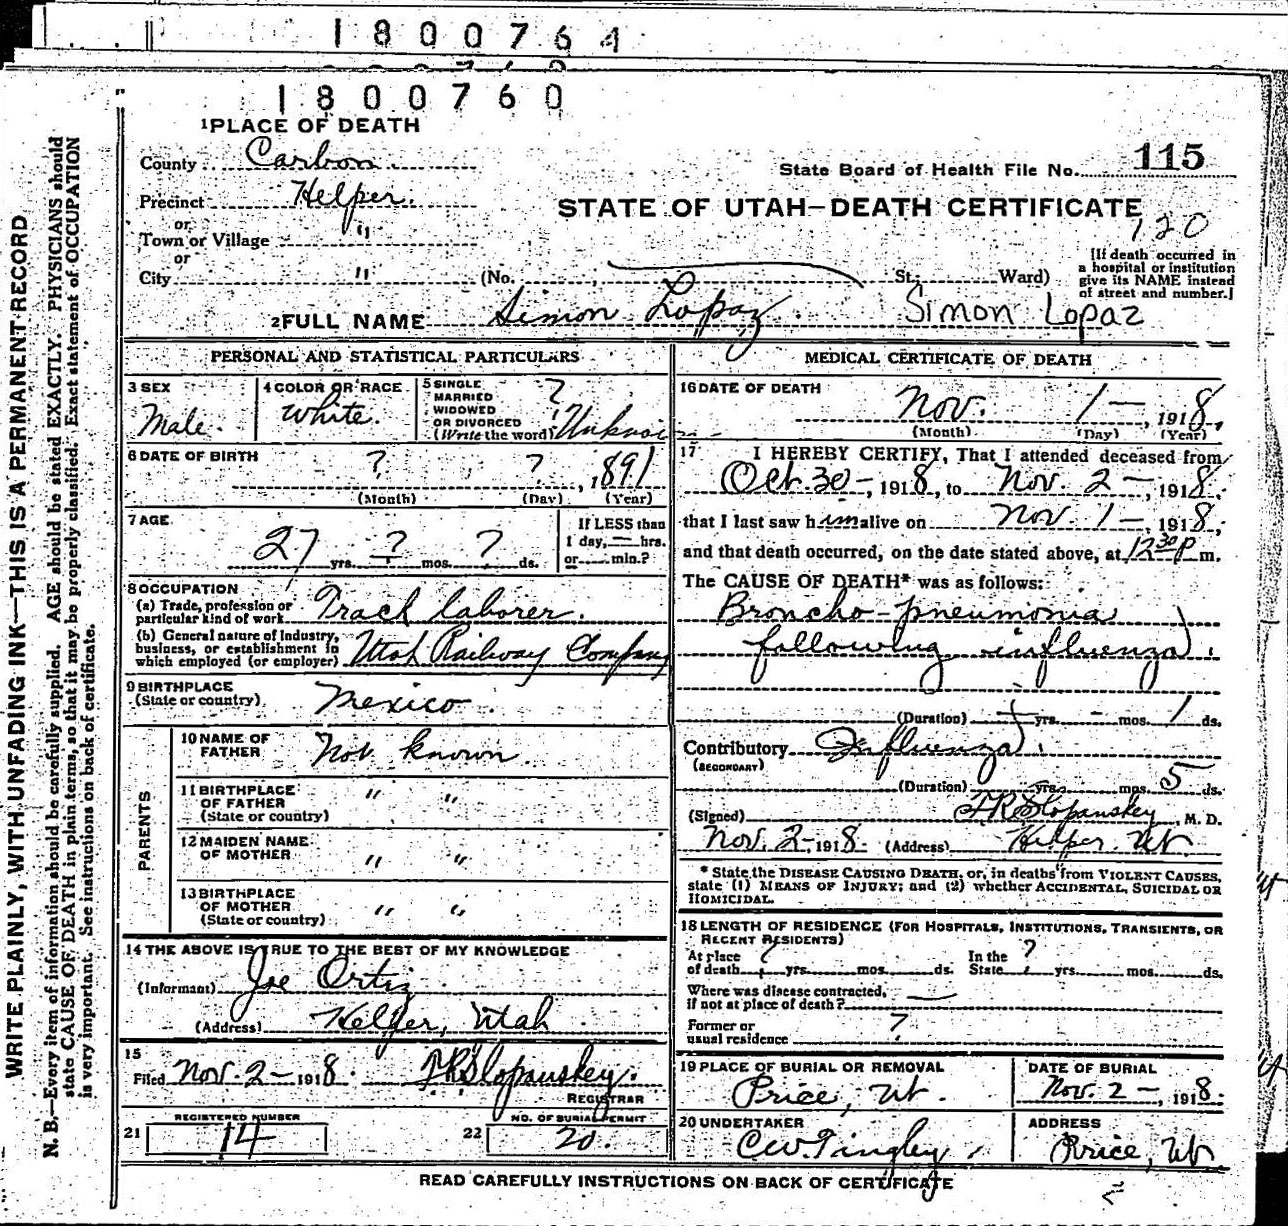 1800764
1800760
1 PLACE OF DEATH
County Carbon
State Board of Health File No. 115
Precinct Helper.
STATE OF UTAH—DEATH CERTIFICATE
120
or
Town or Village "
or
City "
(No. St. Ward)
[If death occurred in
a hospital or institution
give its NAME instead
of street and number.]
2 FULL NAME Simon Lopaz. Simon Lopaz
PERSONAL AND STATISTICAL PARTICULARS
3 SEX
Male.
4 COLOR OR RACE
White.
5 SINGLE
MARRIED
WIDOWED
OR DIVORCED
(Write the word)
? Unknown
6 DATE OF BIRTH
? ? , 1891
(Month) (Day) (Year)
7 AGE
27 yrs. ? mos. ? ds.
If LESS than
1 day, — hrs.
or min.?
8 OCCUPATION
(a) Trade, profession or
particular kind of work Track laborer.
(b) General nature of Industry,
business, or establishment in
which employed (or employer) Utah Railway Company
9 BIRTHPLACE
(State or country) Mexico.
PARENTS
10 NAME OF
FATHER Not known
11 BIRTHPLACE
OF FATHER
(State or country) " "
12 MAIDEN NAME
OF MOTHER " "
13 BIRTHPLACE
OF MOTHER
(State or country) " "
14 THE ABOVE IS TRUE TO THE BEST OF MY KNOWLEDGE
(Informant) Joe Ortiz
(Address) Helper, Utah
15
Filed Nov. 2 - 1918. F R Slopanskey.
REGISTRAR
REGISTERED NUMBER
21 14
NO. OF BURIAL PERMIT
22 20.
MEDICAL CERTIFICATE OF DEATH
16 DATE OF DEATH
Nov. 1 —, 1918,
(Month) (Day) (Year)
17 I HEREBY CERTIFY, That I attended deceased from
Oct. 30 -, 1918, to Nov. 2 —, 1918,
that I last saw him alive on Nov. 1 —, 1918,
and that death occurred, on the date stated above, at 12 30 P m.
The CAUSE OF DEATH* was as follows:
Broncho-pneumonia
following influenza.
(Duration) — yrs. — mos. 1 ds.
Contributory Influenza.
(SECONDARY)
(Duration) yrs. mos. 5 ds.
(Signed) F R Slopanskey, M. D.
Nov. 2 - 1918. (Address) Helper. Ut
* State the DISEASE CAUSING DEATH, or, in deaths from VIOLENT CAUSES,
state (1) MEANS OF INJURY; and (2) whether ACCIDENTAL, SUICIDAL OR
HOMICIDAL.
18 LENGTH OF RESIDENCE (FOR HOSPITALS, INSTITUTIONS, TRANSIENTS, OR
RECENT RESIDENTS)
At place
of death ? yrs. mos. ds.
In the
State ? yrs. mos. ds.
Where was disease contracted,
if not at place of death? —
Former or
usual residence ?
19 PLACE OF BURIAL OR REMOVAL
Price, Ut.
DATE OF BURIAL
Nov. 2 —, 1918.
20 UNDERTAKER
CW. Tingley,
ADDRESS
Price, Ut
READ CAREFULLY INSTRUCTIONS ON BACK OF CERTIFICATE
WRITE PLAINLY, WITH UNFADING INK—THIS IS A PERMANENT RECORD
N. B.—Every item of information should be carefully supplied. AGE should be stated EXACTLY. PHYSICIANS should
state CAUSE OF DEATH in plain terms, so that it may be properly classified. Exact statement of OCCUPATION
is very important. See instructions on back of certificate.